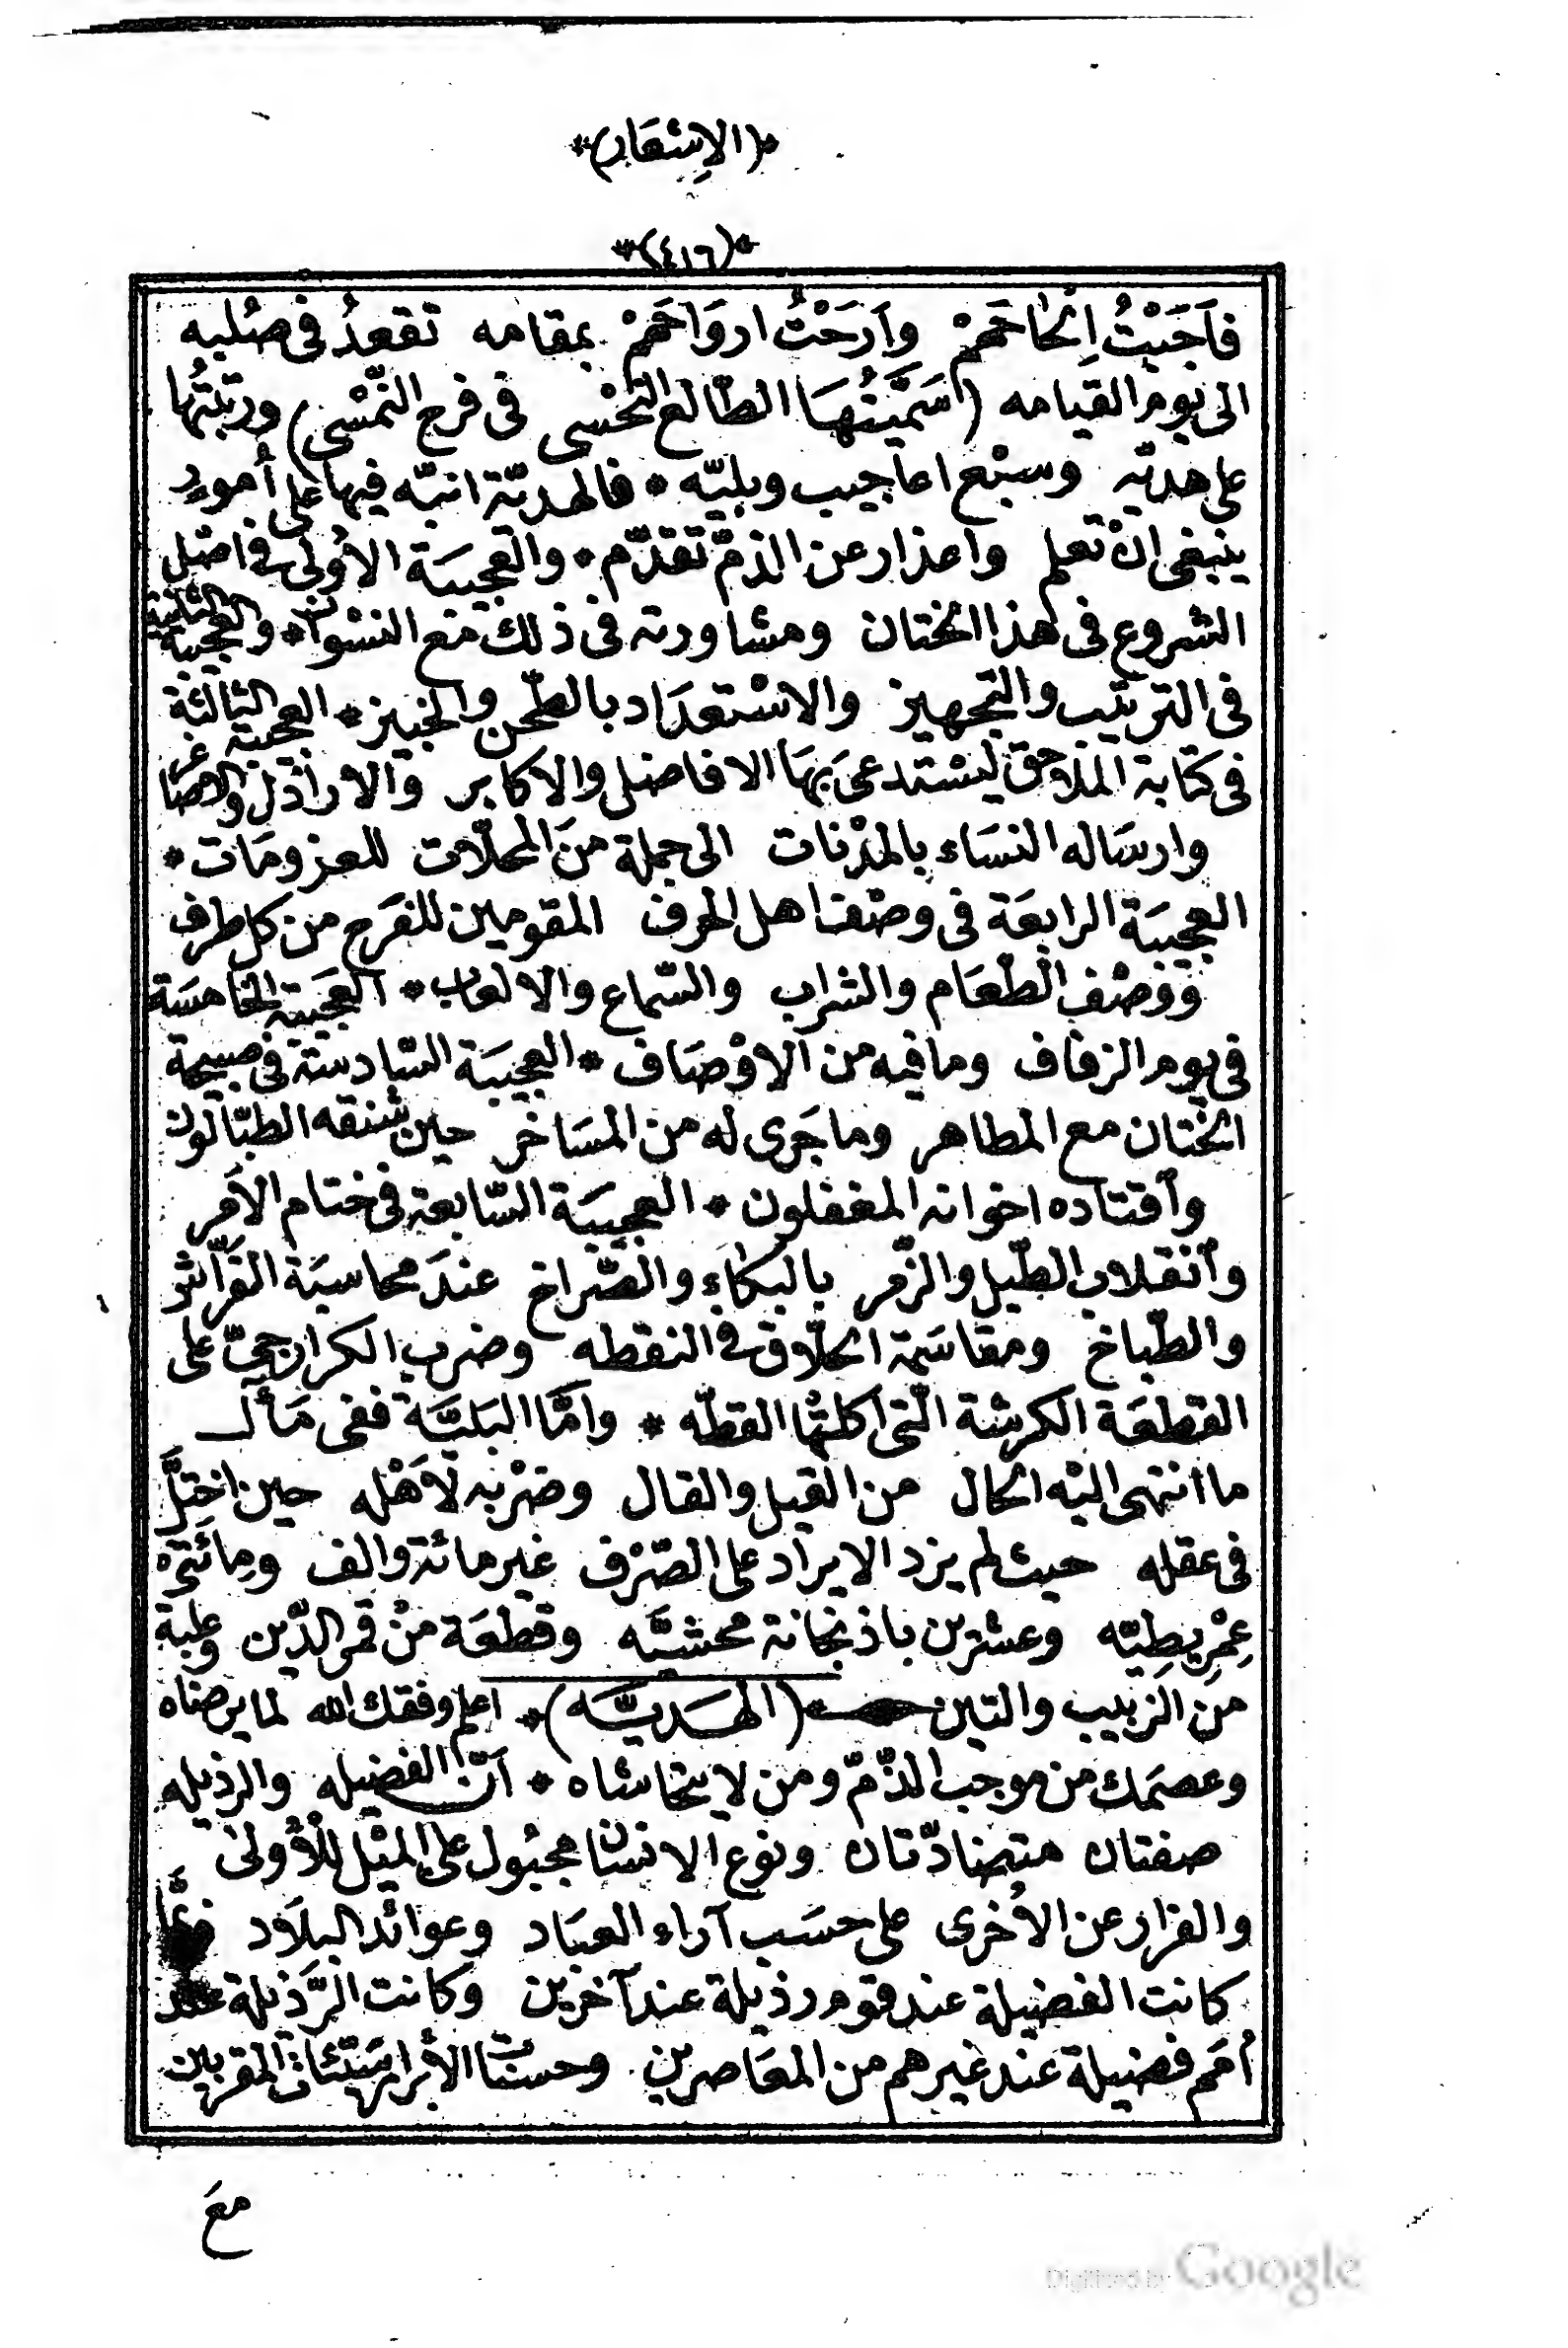 *(الاِشعَار)*
*(٤١٦)*
فاَجَبْتُ اِلحْاحَهمْ وَاَرَحْتُ اروَاحَهمْ بمقامه تقعدُ فى صُلبه
الى يوم القيامه (اسَمَّيتُهَا الطّالع النّحْسى فى فرح النّمْسى) ورتبتُها
على هديّه وسبْع اعاجيب وبليّه * فالهديّة انبّه فيها على اُمورٍ
ينبغى انْ تعلم واعذار عن الذمّ تقدّم * والعجيبَة الاُولى فى اصْل
الشروع فى هذا الختان ومشاورته فى ذلك مَع النسْوان * والعجيبة الثانية
فى الترتيب والتجهيز والاسْتعدَاد بالطّحن والخبيز * العجيبة الثالثة
فى كتابة الملاحق ليستدعىَ بهَا الافاضل والاكابر والاراذل والاصَاغر
وارسَاله النسَاء بالمدْنات الى جملة منَ المحلّات للعزومَات *
العجيبَة الرابعَة فى وصْف اهل الحرف المقومين للفرَح من كل طرف
وَوصْف الطّعَام والشراب والسّماع والالعاب * العَجيبَة الخامسَة
فى يوم الزفاف وما فيه من الاوْصَاف * العجيبَة السّادسة فى صبيحة
الختان مع المطاهر وما جَرى له من المسَاخر حين شنقه الطبّالون
وٱقتاده اخوانه المغفلون * العجيبَة السّابعة فى ختام الاَمر
وٱنقلاب الطّبل والزّمر بالبكاَءِ والصّراخ عندَ محاسبَة الفَرّاش
والطّباخ ومقاسَمة الحلّاق فى النقطه وضرب الكرارجىّ على
القطعَة الكرشة الّتى اكلتْها القطّه * وامَّا البَليَّة ففى مَآل
ما انتهى اليْه الحال من القيل والقال وضرْبه لاَهْله حين اختِلَّ
فى عقله حيث لم يزد الايراد على الصّرْف غير مائة والف ومِائتَىْ
عِمْرِيطِيّه وعشرين باذنجانة محشيَّه وقطعَة منْ قمر الدّين وعلبة
من الزبيب والتين *(الهَديَّه)* اعلم وفقك الله لما يرضاه
وعصمَك من موجب الذّمّ ومن لا يتحاشاه * اَنّ الفضيله والرذيله
صفتان متضادّتان ونوع الانسان مجبُول على الميْل للاُولى
والفرار عن الاُخرى على حسَب آراء العبَاد وعوائد البلاَد فربَّما
كانت الفضيلة عند قوم رذيلة عند آخرين وكانت الرَّذيلة عند
اُمَم فضيلة عند غيرهم من المعَاصرين وحسنات الأبرار سَيّئات المقربين
معَ
Digitized by Google